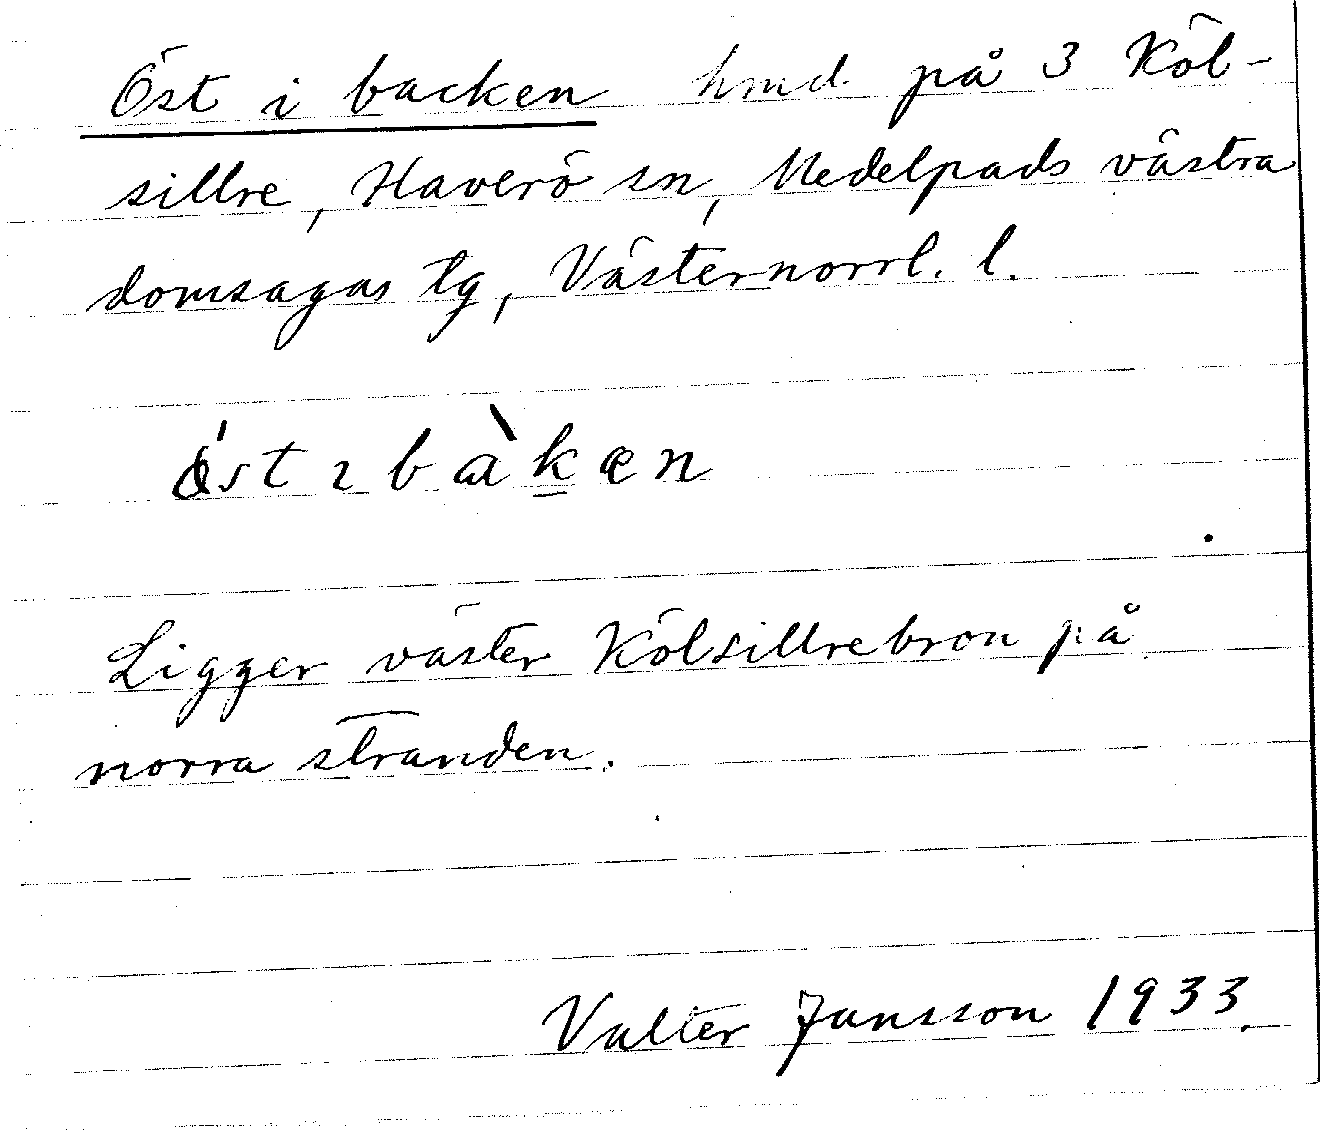 Öst i backen hmd på 3 Köl-
sillre, Haverö sn, Medelpads västra
domsagas tg, Västernorrl. l.
ǿst ɩ bàk̲en
Ligger väster Kölsillrebron på
norra stranden.
Valter Jansson 1933.